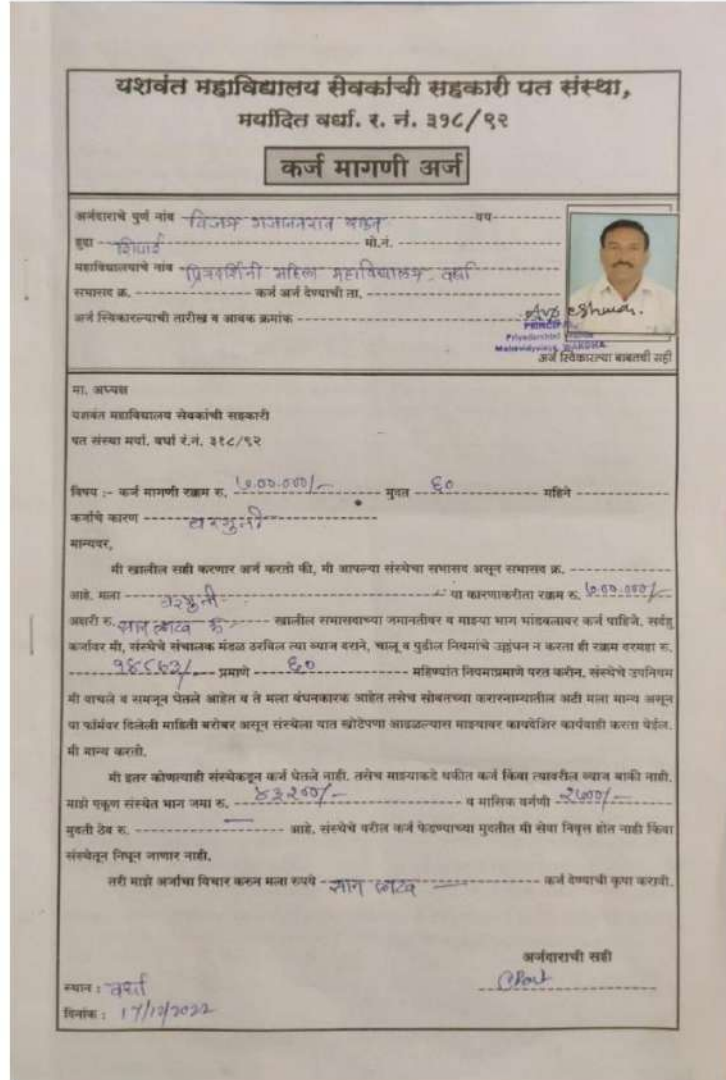 यशवंत महाविद्यालय सेवकांची सहकारी पत संस्था,
मर्यादित वर्धा. र. नं. ३१८/९२
कर्ज मागणी अर्ज
अर्जदाराचे पुर्ण नांव विजय गजाननराव वय
हुद्दा शिपाई मो.नं.
महाविद्यालयाचे नांव प्रियदर्शिनी महिला महाविद्यालय, वर्धा
सभासद क्र. कर्ज अर्ज देण्याची ता.
अर्ज स्विकारल्याची तारीख व आवक क्रमांक
PRINCIPAL
Priyadarshini Mahila
Mahavidyalaya, WARDHA
अर्ज स्विकारल्या बाबतची सही
मा. अध्यक्ष
यशवंत महाविद्यालय सेवकांची सहकारी
पत संस्था मर्या. वर्धा रं.नं. ३१८/९२
विषय :- कर्ज मागणी रक्कम रु. ७,००,०००/- मुदत ६० महिने
कर्जाचे कारण घरगुती
मान्यवर,
मी खालील सही करणार अर्ज करतो की, मी आपल्या संस्थेचा सभासद असून सभासद क्र.
आहे. मला घरगुती या कारणाकरीता रक्कम रु. ७,००,०००/-
अक्षरी रु. सात लाख रु खालील सभासदाच्या जमानतीवर व माझ्या भाग भांडवलावर कर्ज पाहिजे. सदंहु
कर्जावर मी, संस्थेचे संचालक मंडळ ठरविल त्या व्याज दराने, चालू व पुढील नियमांचे उल्लंघन न करता ही रक्कम दरमहा रु.
१५८६३/- प्रमाणे ६० महिण्यांत नियमाप्रमाणे परत करीन. संस्थेचे उपनियम
मी वाचले व समजून घेतले आहेत व ते मला बंधनकारक आहेत तसेच सोबतच्या करारनाम्यातील अटी मला मान्य असून
या फॉर्मवर दिलेली माहिती बरोबर असून संस्थेला यात खोटेपणा आढळल्यास माझ्यावर कायदेशिर कार्यवाही करता येईल.
मी मान्य करतो.
मी इतर कोणत्याही संस्थेकडून कर्ज घेतले नाही. तसेच माझ्याकडे थकीत कर्ज किंवा त्यावरील व्याज बाकी नाही.
माझे एकूण संस्थेत भाग जमा रु. ४३२००/- व मासिक वर्गणी २७००/-
मुदती ठेव रु. आहे. संस्थेचे वरील कर्ज फेडण्याच्या मुदतीत मी सेवा निवृत्त होत नाही किंवा
संस्थेतून निघून जाणार नाही.
तरी माझे अर्जाचा विचार करुन मला रुपये सात लाख कर्ज देण्याची कृपा करावी.
अर्जदाराची सही
स्थान : वर्धा
दिनांक : 17/12/2022